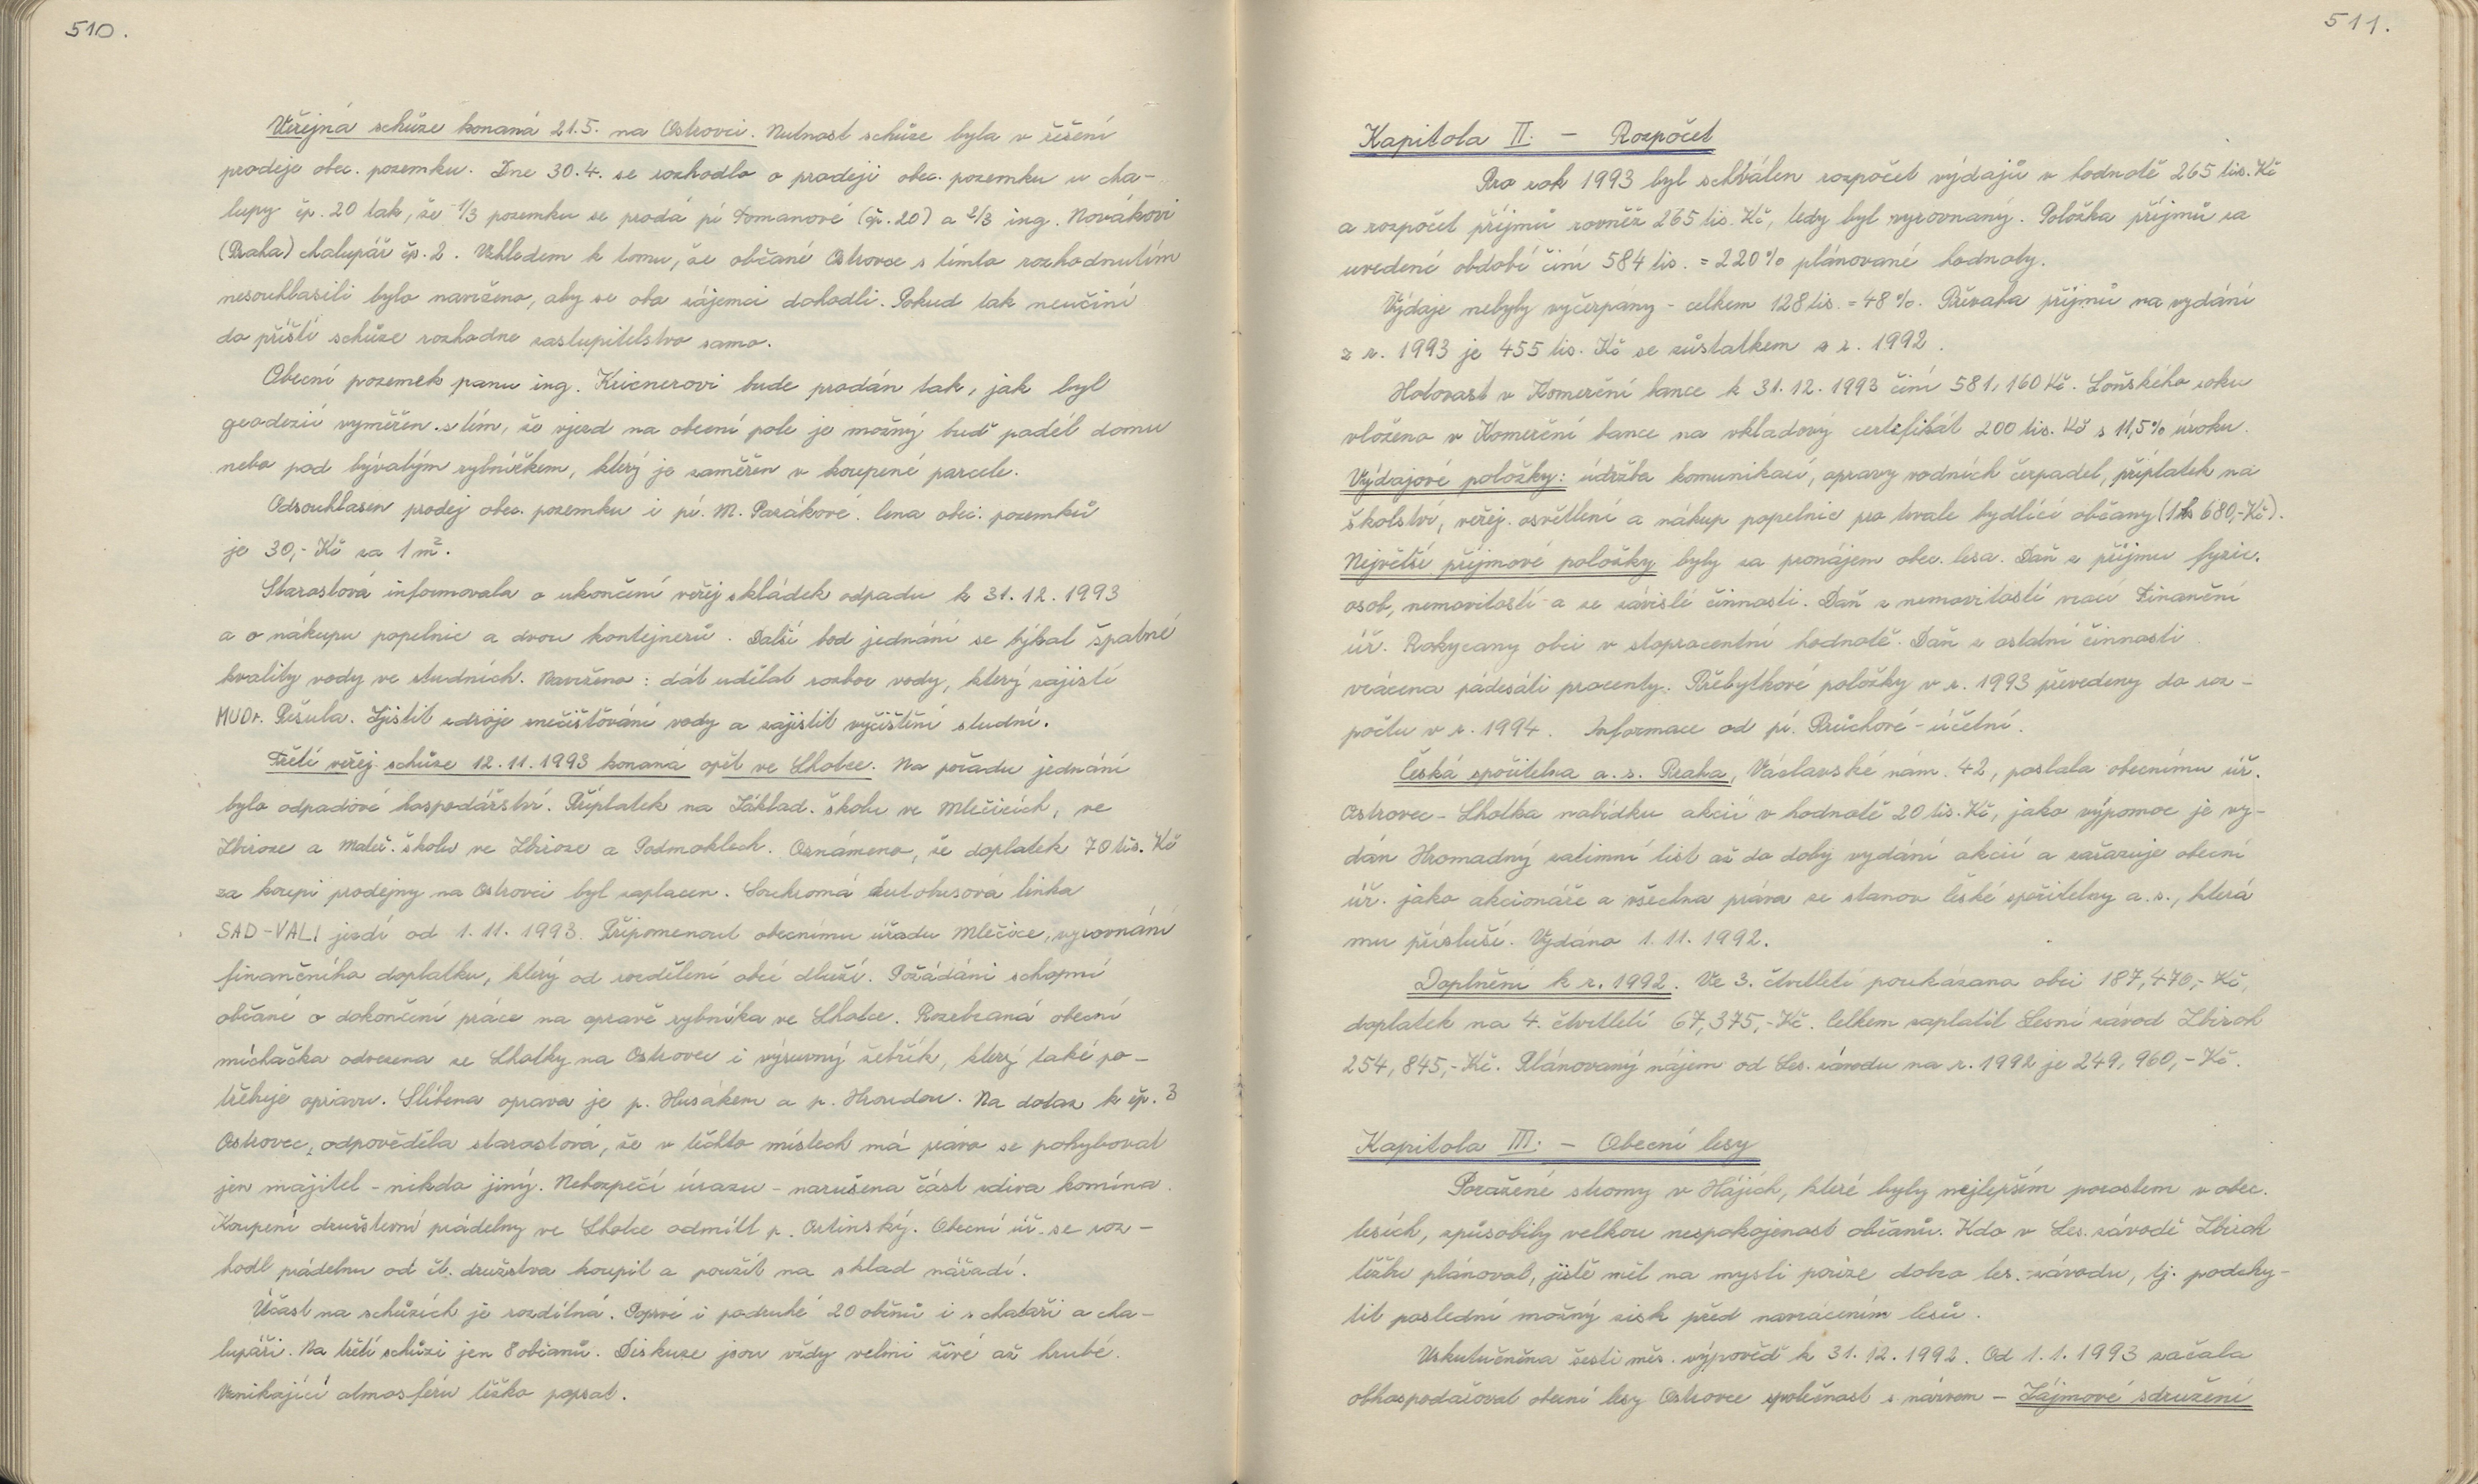 510.
Veřejná schůze konaná 21.5. na Ostrovci. Nutnost schůze byla v řešení
prodeje obec. pozemku. Dne 30.4. se rozhodlo o prodeji obec. pozemku u cha-
lupy čp. 20 tak, že 1/3 pozemku se prodá pí Tomanové (čp. 20) a 2/3 ing. Novákovi
(Praha) chalupář čp. 2. Vzhledem k tomu, že občané Ostrovce s tímto rozhodnutím
nesouhlasili bylo navrženo, aby se oba zájemci dohodli. Pokud tak neučiní
do příští schůze rozhodne zastupitelstvo samo.
Obecní pozemek panu ing. Kricnerovi bude prodán tak, jak byl
geodézií vyměřen s tím, že vjezd na obecní pole je možný buď podél domu
nebo pod bývalým rybníčkem, který je zaměřen v koupené parcele.
Odsouhlasen prodej obec. pozemku i pí. M. Parákové. Cena obec. pozemků
je 30,- Kč za 1 m².
Starostová informovala o ukončení veřej. skládek odpadu k 31.12.1993
a o nákupu popelnic a dvou kontejnerů. Další bod jednání se týkal špatné
kvality vody ve studních. Navrženo: dát udělat rozbor vody, který zajistí
MUDr. Pešula. Zjistit zdroje znečišťování vody a zajistit vyčištění studní.
Třetí veřej. schůze 12.11.1993 konaná opět ve Lhotce. Na pořadu jednání
bylo odpadové hospodářství. Příplatek na Základ. školu ve Mlečicích, ve
Zbiroze a Mateř. školu ve Zbiroze a Podmoklech. Oznámeno, že doplatek 70 tis. Kč
za koupi prodejny na Ostrovci byl zaplacen. Soukromá autobusová linka
SAD-VALI jezdí od 1.11.1993. Připomenout obecnímu úřadu Mlečice, vyrovnání
finančního doplatku, který od rozdělení obcí dluží. Požádáni schopní
občané o dokončení práce na opravě rybníka ve Lhotce. Rozebraná obecní
míchačka odvezena ze Lhotky na Ostrovec i výsuvný žebřík, který také po-
třebuje opravu. Slíbena oprava je p. Husákem a p. Hroudou. Na dotaz k čp. 3
Ostrovec, odpověděla starostová, že v těchto místech má právo se pohybovat
jen majitel - nikdo jiný. Nebezpečí úrazu - narušena část zdiva komína.
Koupení družstevní prádelny ve Lhotce odmítl p. Ortinský. Obecní úř. se roz-
hodl prádelnu od čl. družstva koupit a použít na sklad nářadí.
Účast na schůzích je rozdílná. Poprvé i podruhé 20 občanů i s chataři a cha-
lupáři. Na třetí schůzi jen 8 občanů. Diskuze jsou vždy velmi živé až hrubé.
Vznikající atmosféru těžko popsat.
511.
Kapitola II. - Rozpočet
Pro rok 1993 byl schválen rozpočet výdajů v hodnotě 265 tis. Kč
a rozpočet příjmů rovněž 265 tis. Kč, tedy byl vyrovnaný. Položka příjmů za
uvedené období činí 584 tis. = 220% plánované hodnoty.
Výdaje nebyly vyčerpány - celkem 128 tis. = 48%. Převaha příjmů na vydání
z r. 1993 je 455 tis. Kč se zůstatkem z r. 1992.
Hotovost v Komerční bance k 31.12.1993 činí 581,160 Kč. Loňského roku
vloženo v Komerční bance na vkladový certifikát 200 tis. Kč s 11,5% úroku.
Výdajové položky: údržba komunikací, opravy vodních čerpadel, příplatek na
školství, veřej. osvětlení a nákup popelnic pro trvale bydlící občany (1 ks 680,-Kč).
Největší příjmové položky byly za pronájem obec. lesa. Daň z příjmu fyzic.
osob, nemovitostí a ze závislé činnosti. Daň z nemovitostí vrací Finanční
úř. Rokycany obci v stoprocentní hodnotě. Daň z ostatní činnosti
vrácena padesáti procenty. Přebytkové položky v r. 1993 převedeny do roz-
počtu v r. 1994. Informace od pí. Průchové - účetní.
Česká spořitelna a.s. Praha, Václavské nám. 42, poslala obecnímu úř.
Ostrovec - Lhotka nabídku akcií v hodnotě 20 tis. Kč, jako výpomoc je vy-
dán Hromadný zatimní list až do doby vydání akcií a zařazuje obecní
úř. jako akcionáře a všechna práva ze stanov České spořitelny a.s., která
mu přísluší. Vydáno 1.11.1992.
Doplnění k r. 1992. Ve 3. čtvrtletí poukázano obci 187,470,- Kč,
doplatek na 4. čtvrtletí 67,375,- Kč. Celkem zaplatil Lesní závod Zbiroh
254,845,- Kč. Plánovaný nájem od Les. závodu na r. 1992 je 249,960,- Kč.
Kapitola III. - Obecní lesy
Poražené stromy v Hájích, které byly nejlepším porostem v obec.
lesích, způsobily velkou nespokojenost občanů. Kdo v Les. závodě Zbiroh
těžbu plánoval, jistě měl na mysli pouze dobro les. závodu, tj. podchy-
tit poslední možný zisk před navrácením lesů.
Uskutečněna šesti měs. výpověď k 31.12.1992. Od 1.1.1993 začala
obhospodařovat obecní lesy Ostrovce společnost s názvem - Zájmové sdružení